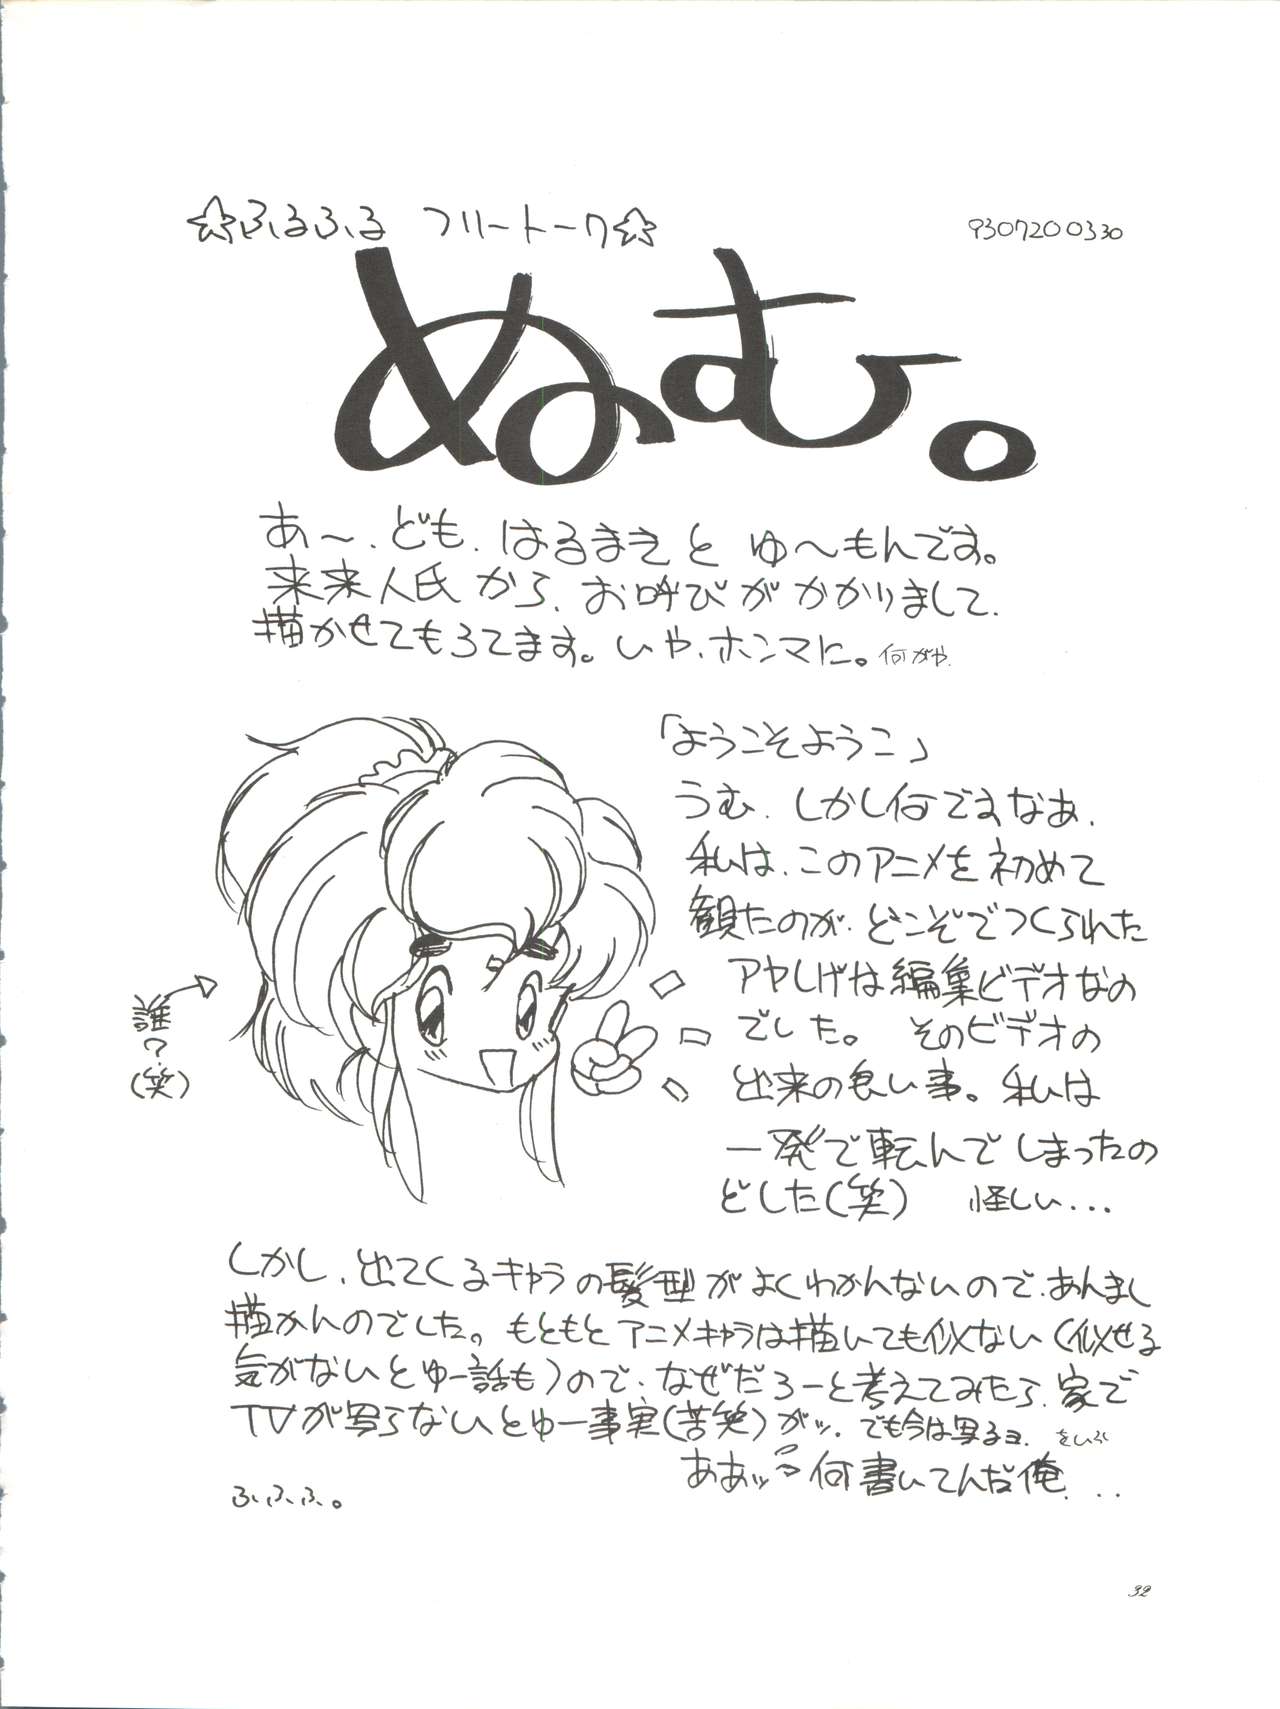 ☆ふるふる フリートーク☆
9307200330
ぬむ。
あ〜、ども、はるまきと ゆ〜もんです。
来来人氏から、お呼びがかかりまして、
描かせてもろてます。いや、ホンマに。何がや
「ようこそようこ」
うむ、しかし何ですなあ、
私は、このアニメを初めて
観たのが、どこぞでつくられた
アヤしげな編集ビデオなの
でした。 そのビデオの
出来の良い事。私は
一発で転んでしまったの
どした(笑) 怪しい...
誰?
(笑)
しかし、出てくるキャラの髪型がよくわかんないので、あんまし
描かんのでした。もともとアニメキャラは描いても似ない(似せる
気がないとゆー話も)ので、なぜだろーと考えてみたら、家で
TVが写らないとゆー事実(苦笑)がッ。でも今は写るヨ。
ああッ 何書いてんだ俺...
ふ、ふ、ふ。
32